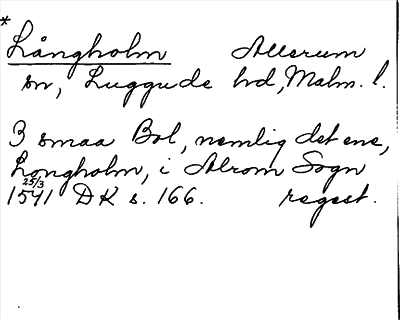 * Långholm Allerum
sn, Luggude hd, Malm. l.
3 smaa Bol, nemlig det ene,
Longholm, i Alrom Sogn
25/3
1541 DK s. 166. regest.